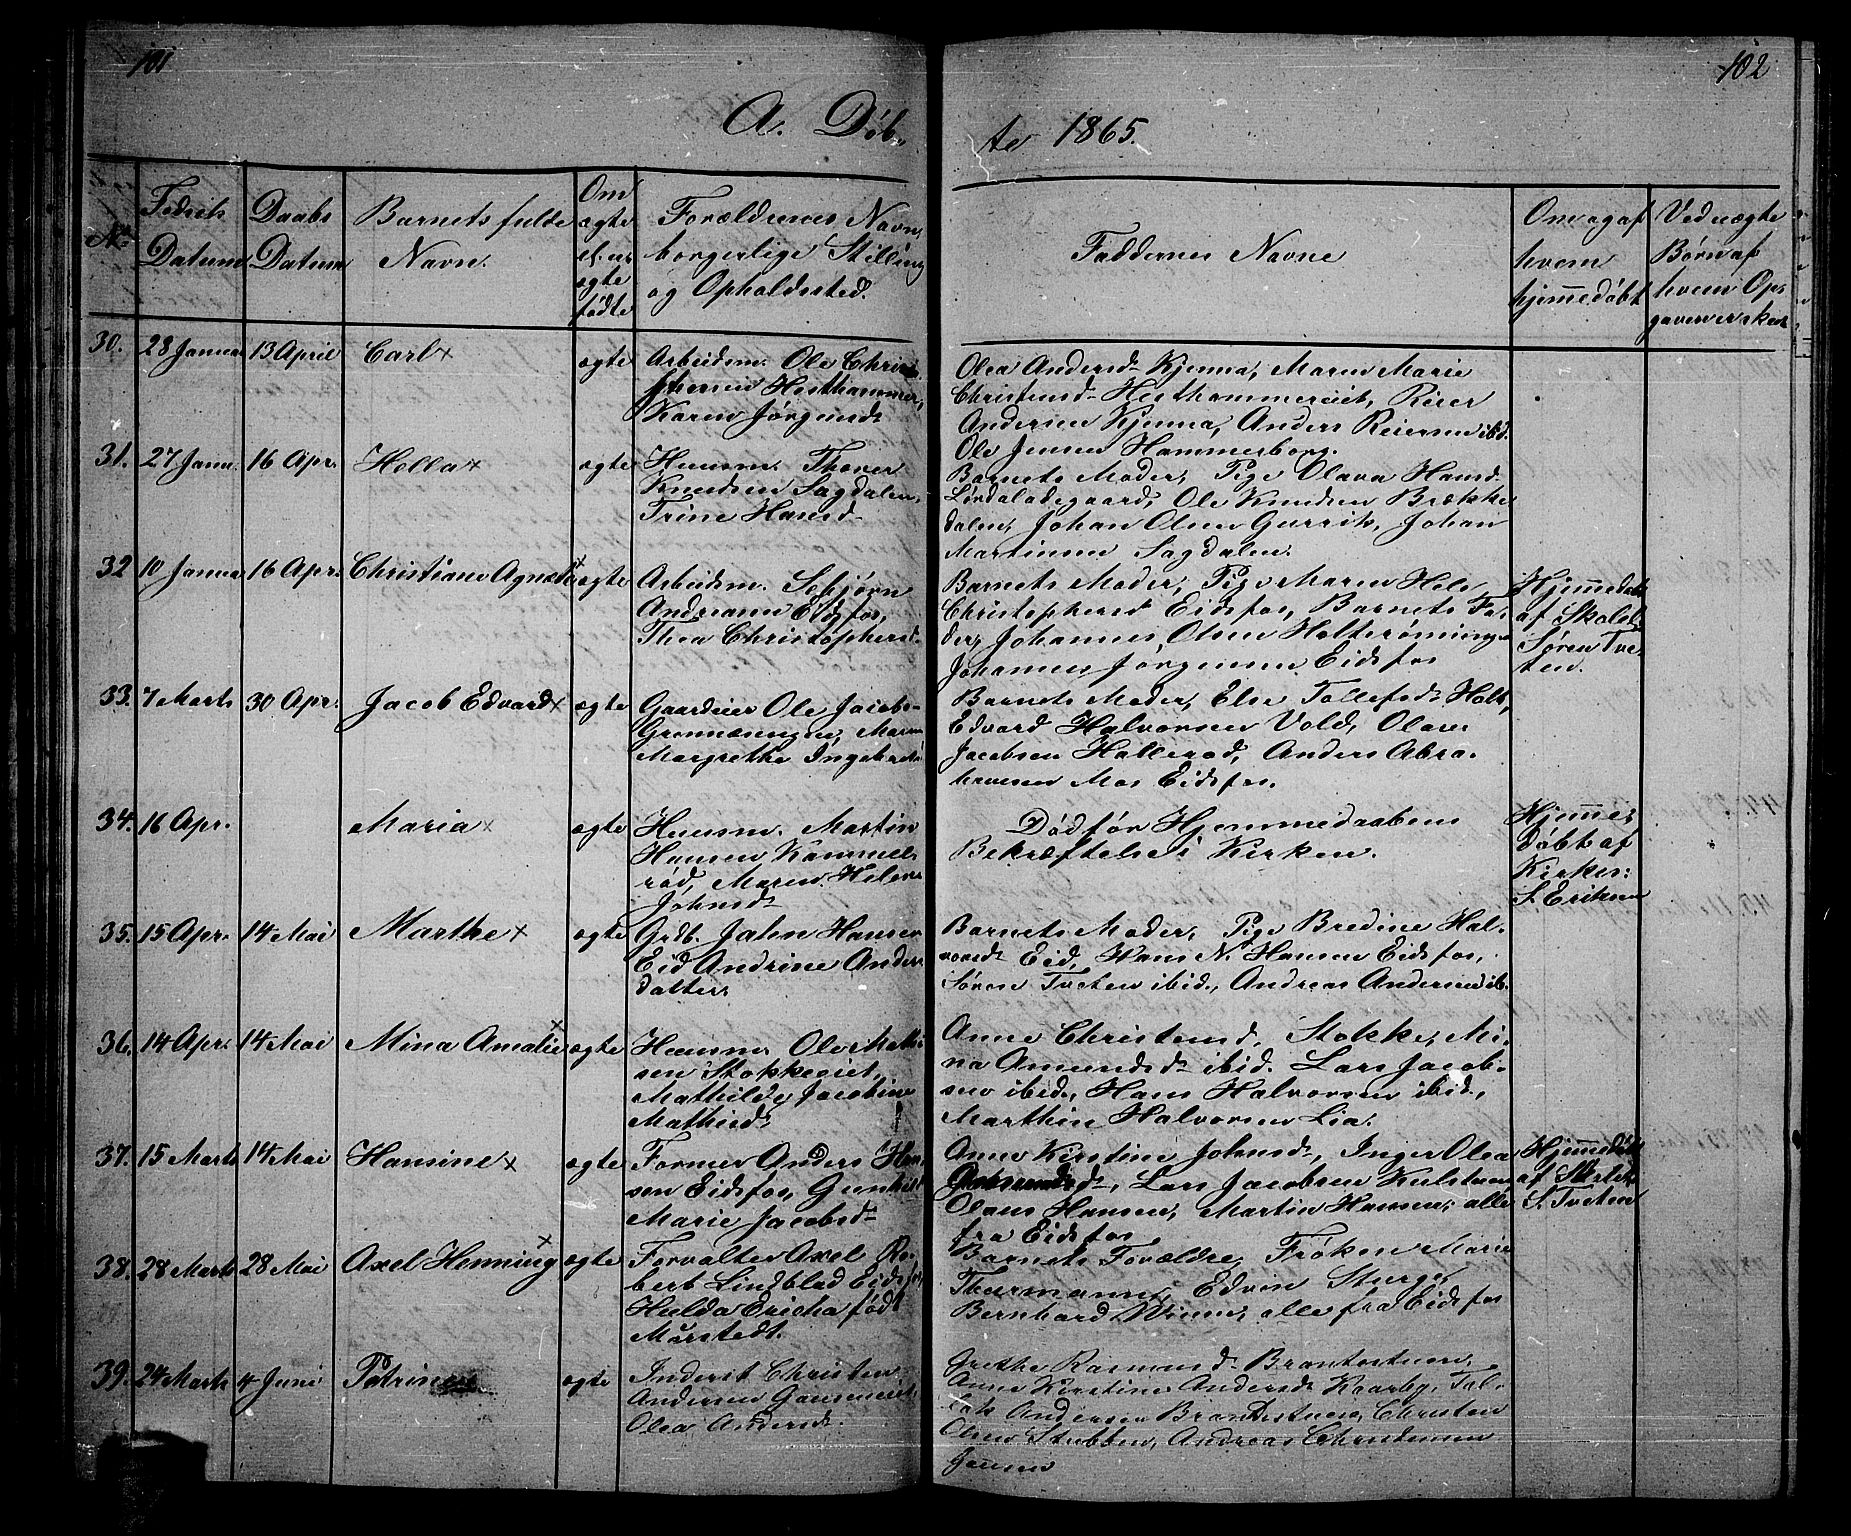 101
102
A. Døb-
te 1865.
No
Fødsels
Datum
Daabs
Datum
Barnets fulde
Navn.
Om
ægte
el. u-
ægte
fødte
Forældrenes Navn,
borgerlige Stilling
og Opholdssted.
Faddernes Navne
Om og af
hvem
hjemmedøbt
Ved uægte
Børn af
hvem Op-
30. 28 Januar 13 April Carl x ægte
Arbeidsm. Ole Chris-
Hesthammer,
Karen Jørgensd.
Olea Andersd. Kjenna, Maren Marie
Christensd. Hesthammereiet, Reier
Andersen Kjenna, Anders Reiersen ibd.
Ole Jensen Hammersborg.
31. 27 Janu. 16 Apr. Hella x ægte
Huusm. Thover
Knudsen Sagdalen,
Trine Hansd.
Barnets Moder, Pige Olava Hansd.
Ole Knudsen Brække
dalen, Johan Olsen Johan
Martinsen Sagdalen.
32 10 Januar 16 Apr. Christiane Agnete x ægte
Arbeidsm.
Andersen Eidsfos,
Thea Christophersd.
Barnets Moder, Pige Maren Hel.
Christophersd. Eidsfos, Barnets Fa-
der, Johannes Olsen Holterøningen
Johannes Jørgensen Eidsfos
Hjemmedøbt
af Skolel.
Søren Tve-
ten.
33. 7 Marts 30 Apr. Jacob Edvard x ægte
Gaardeier Ole Jacobs-
Grønneningen, Maren
Margrethe Ingebretsd.
Barnets Moder, Else Tollefsd. Holt,
Edvard Halvorsen Vold, Olaves
Jacobsen Hallerød, Anders Abra-
hamsen Moe Eidsfos.
34. 16 Apr. Maria x ægte
Huusm. Martin
Hansen Kammel-
rød, Maren Helene
Johnsd.
Død før Hjemmedaabens
Bekræftelse i Kirken.
Hjemme-
døbt af
Kirkes:
S. Eriksen
35. 15 Apr. 14 Mai Marthe x ægte
Grdb. John Hansen
Eid Andrine Anders
datter.
Barnets Moder, Pige Bredine Hal-
vorsd. Eid, Hans N. Hansen Eidsfos,
Søren Tveten ibid., Andreas Andersen ib.
36. 14 Apr. 14 Mai Mina Amalie x ægte
Huusm. Ole Mathi-
sen Stokkeeiet,
Mathilde Jacobine
Mathisd.
Anne Christensd. Stokke, Mi-
na Amundsd. ibid. Lars Jacob-
sen ibid., Hans Halvorsen ibid.,
Marthin Halvorsen Lia.
37. 15 Marts 14 Mai Hansine x ægte
Former Anders Han-
sen Eidsfos, Gunhild
Marie Jacobsd.
Anne Kirstine Johnsd., Inger Olea
Lars Jacobsen
Olaus Hansen, Martin Hansen, alle
fra Eidsfos
Hjemmedøbt
af Skolel.
S. Tveten
38. 28 Marts 28 Mai Axel Henning x ægte
Forvalter Axel Ro-
bert Lindblad Eidsfos,
Hulda Ericha født
Marstedt.
Barnets Forældre, Frøken Marie
Thurmann, Edvin Sturge,
Bernhard Winne, alle fra Eidsfos
39. 24 Marts 4 Juni ægte
Inderst Christen
Andersen
Olea Andersd.
Grethe Rasmusd. Brantestuen,
Anne Kirstine Andersd. Kaarby, Tol-
lak Andersen Brantestuen, Christen
Olsen Stubben, Andreas Christensen
Jansen